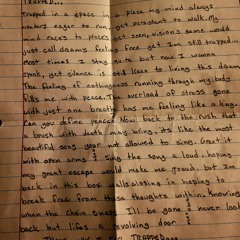 TRAPPED...
Trapped in a space in a place my mind always
wonders eager to run, but persistent to walk. My
mind races to places yet seen, visions some would
just call dreams feeling free yet Im still trapped...
most times I stay quite but now I wanna
speak, yet silence is still keen to living this dream
The feeling of nothingness running through my body
fills me with peace. The overload of stress gone
with just one breathe has me feeling like a king.
Can you define peace? Now back to the rush that
a brush with death may bring, it's like the most
beautiful song your not allowed to sing. Greet it
with open arms & sing the song aloud, hoping
my great escape would make me proud, but Im
back in this box walls closing in hoping to
break free from those thoughts within. Knowing
when the chain snaps I'll be gone & never look
back but lifes a revolving door
TRAPPED...